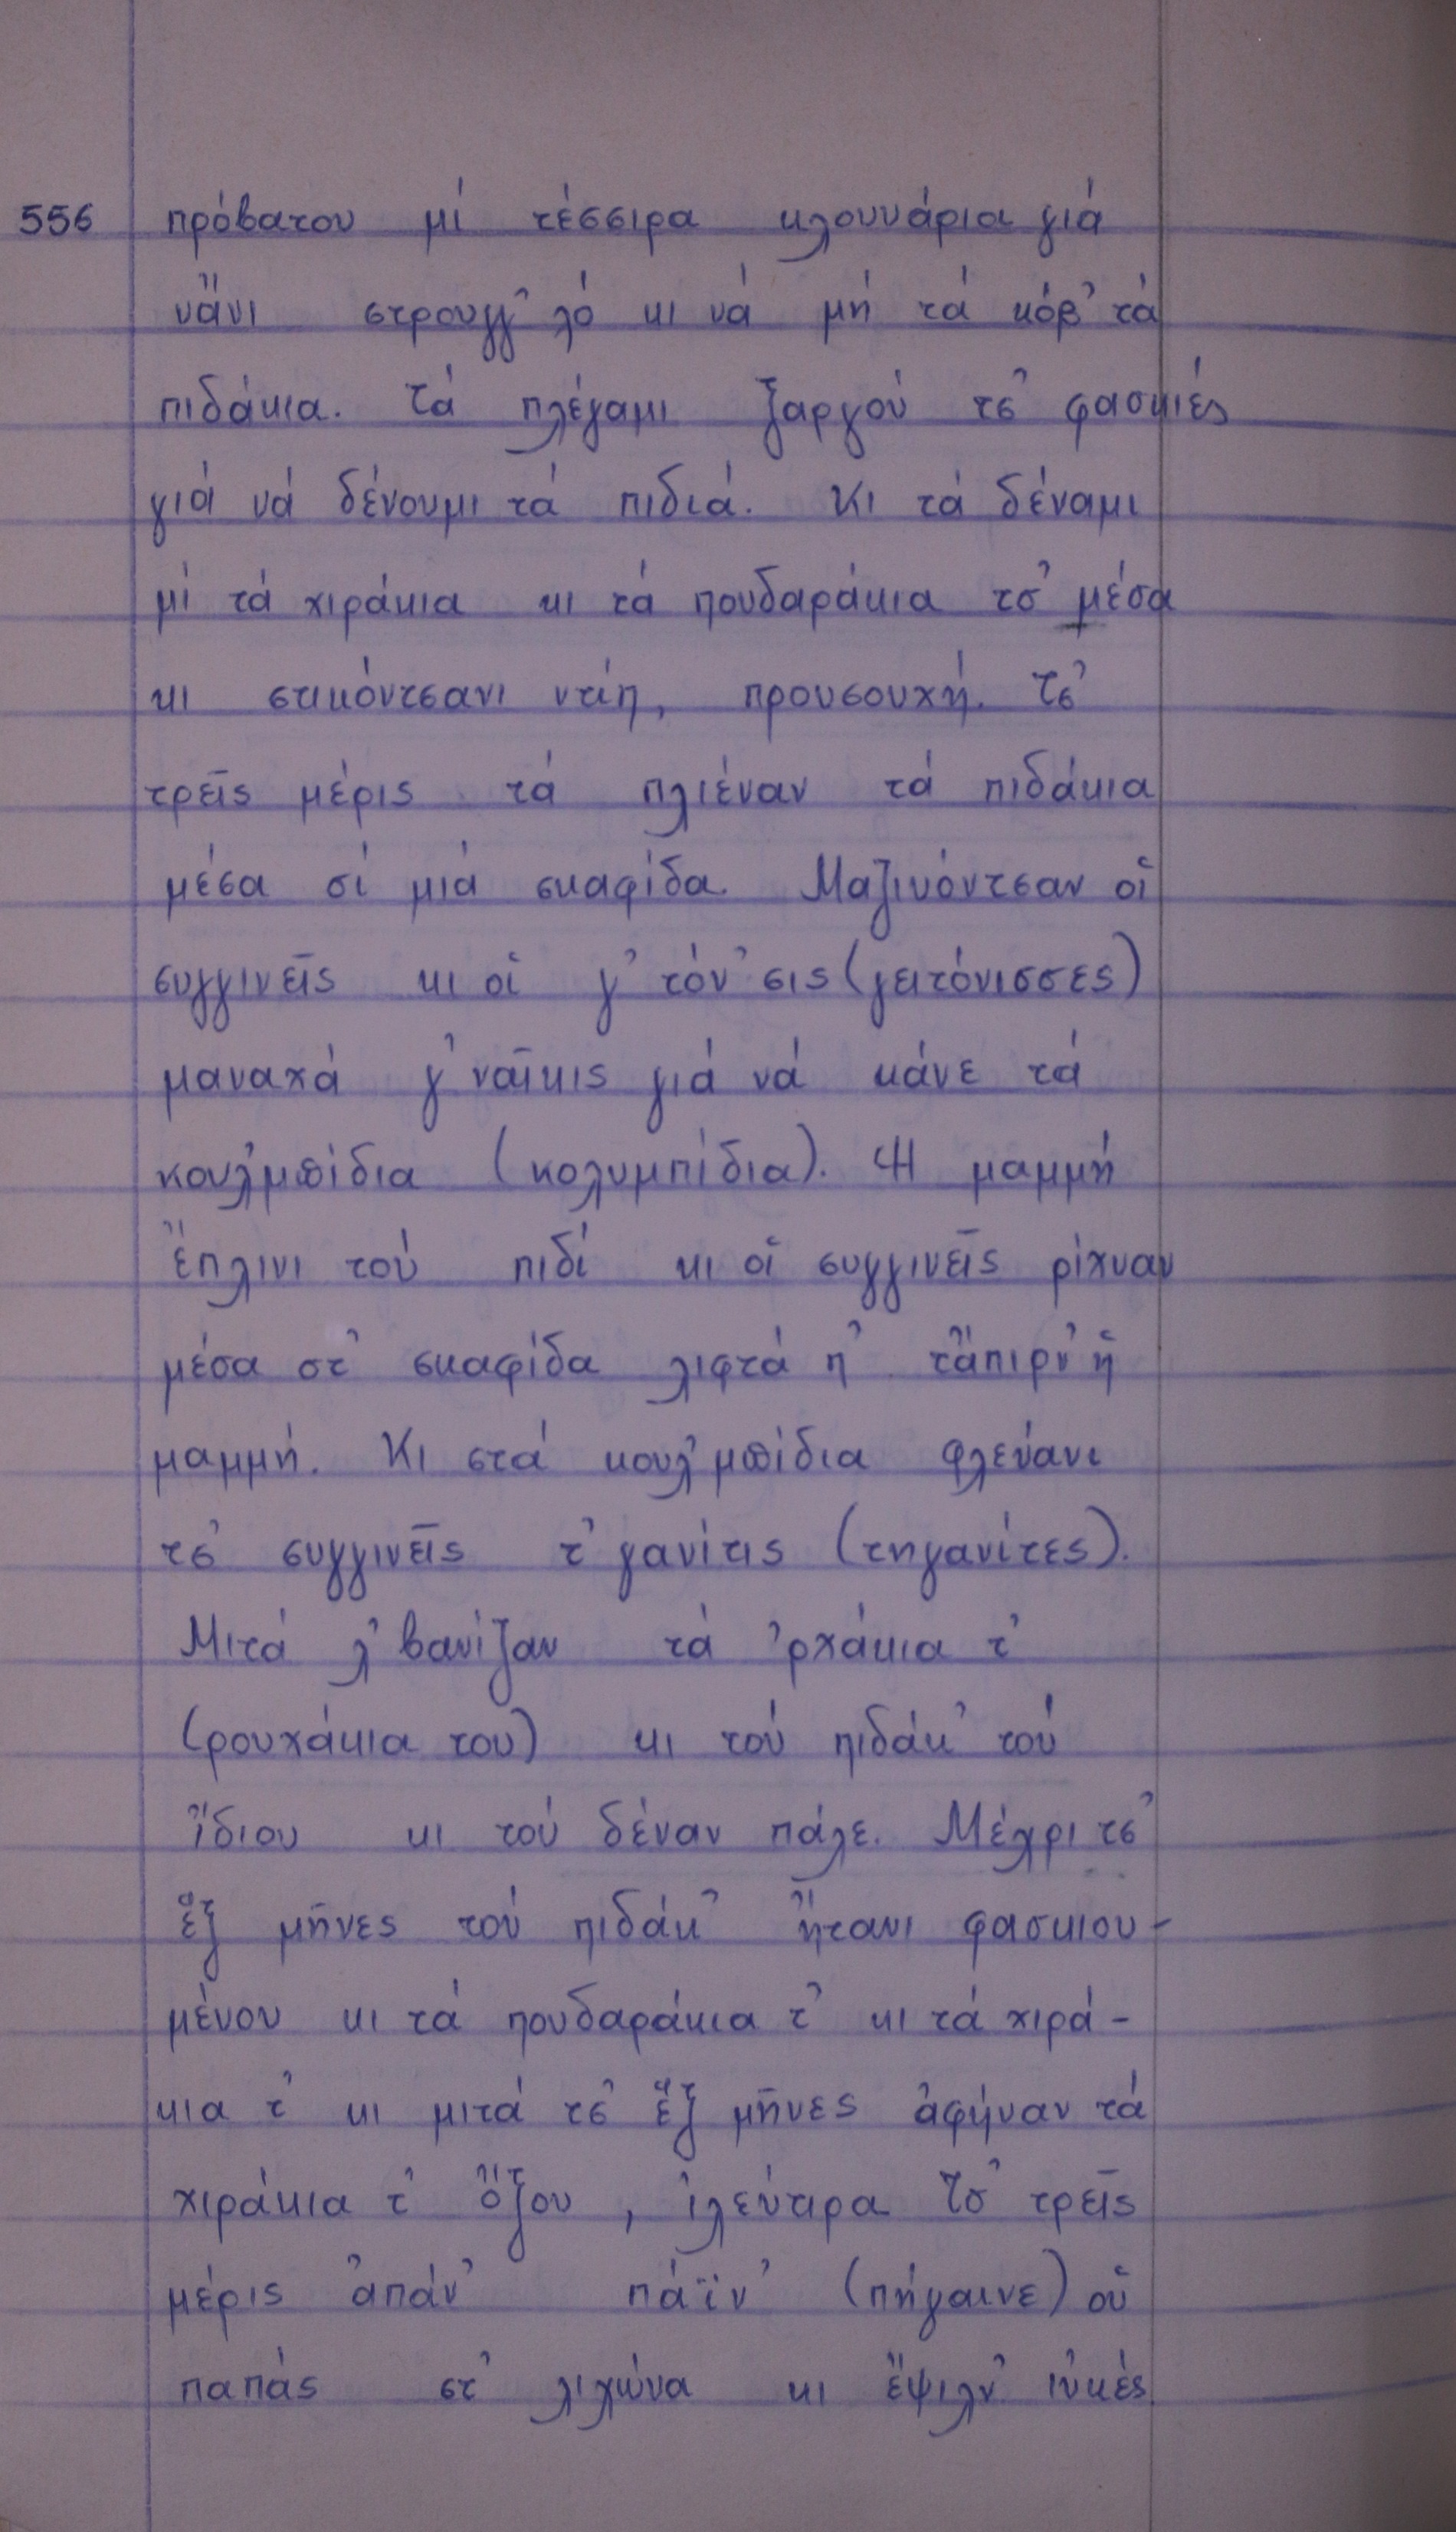 556 πρόβατου μί τέσσιρα κλουνάρια γιά
νἄνι στρουγγ' λό κι νά μή τά κόβ' τά
πιδάκια. Τά πλέγαμι ξαργού τσ' φασκιές
γιά νά δένουμι τά πιδιά. Κι τά δέναμι
μί τά χιράκια κι τά πουδαράκια τσ' μέσα
κι στικόντσανι ντίπ, προυσουχή. Τσ'
τρεῖς μέρις τά πλιέναν τά πιδάκια
μέσα σί μιά σκαφίδα. Μαζινόντσαν οἱ
συγγινεῖς κι οἱ γ' τόν' σις (γειτόνισσες)
μαναχά γ' ναῖκις γιά νά κάνε τά
κουλ'μπίδια (κολυμπίδια). Ἡ μαμμή
ἔπλινι τού πιδί κι οἱ συγγινεῖς ρίχναν
μέσα στ' σκαφίδα λιφτά π' τἄπιρν' ἡ
μαμμή. Κι στά κουλ'μπίδια φλεύανι
τσ' συγγινεῖς τ' γανίτις (τηγανίτες).
Μιτά λ' βανίζαν τά 'ρχάκια τ'
(ρουχάκια του) κι τού πιδάκ' τού
ἴδιου κι τού δέναν πάλε. Μέχρι τσ'
ἕξ μῆνες τού πιδάκ' ἤτανι φασκιου-
μένου κι τά πουδαράκια τ' κι τά χιρά-
κια τ' κι μιτά τσ' ἕξ μῆνες ἀφήναν τά
χιράκια τ' ὄξου, ἰλεύτιρα Τσ' τρεῖς
μέρις ἀπάν' πάϊν' (πήγαινε) οὑ
παπάς στ' λιχώνα κι ἔψιλν' ἰυκές